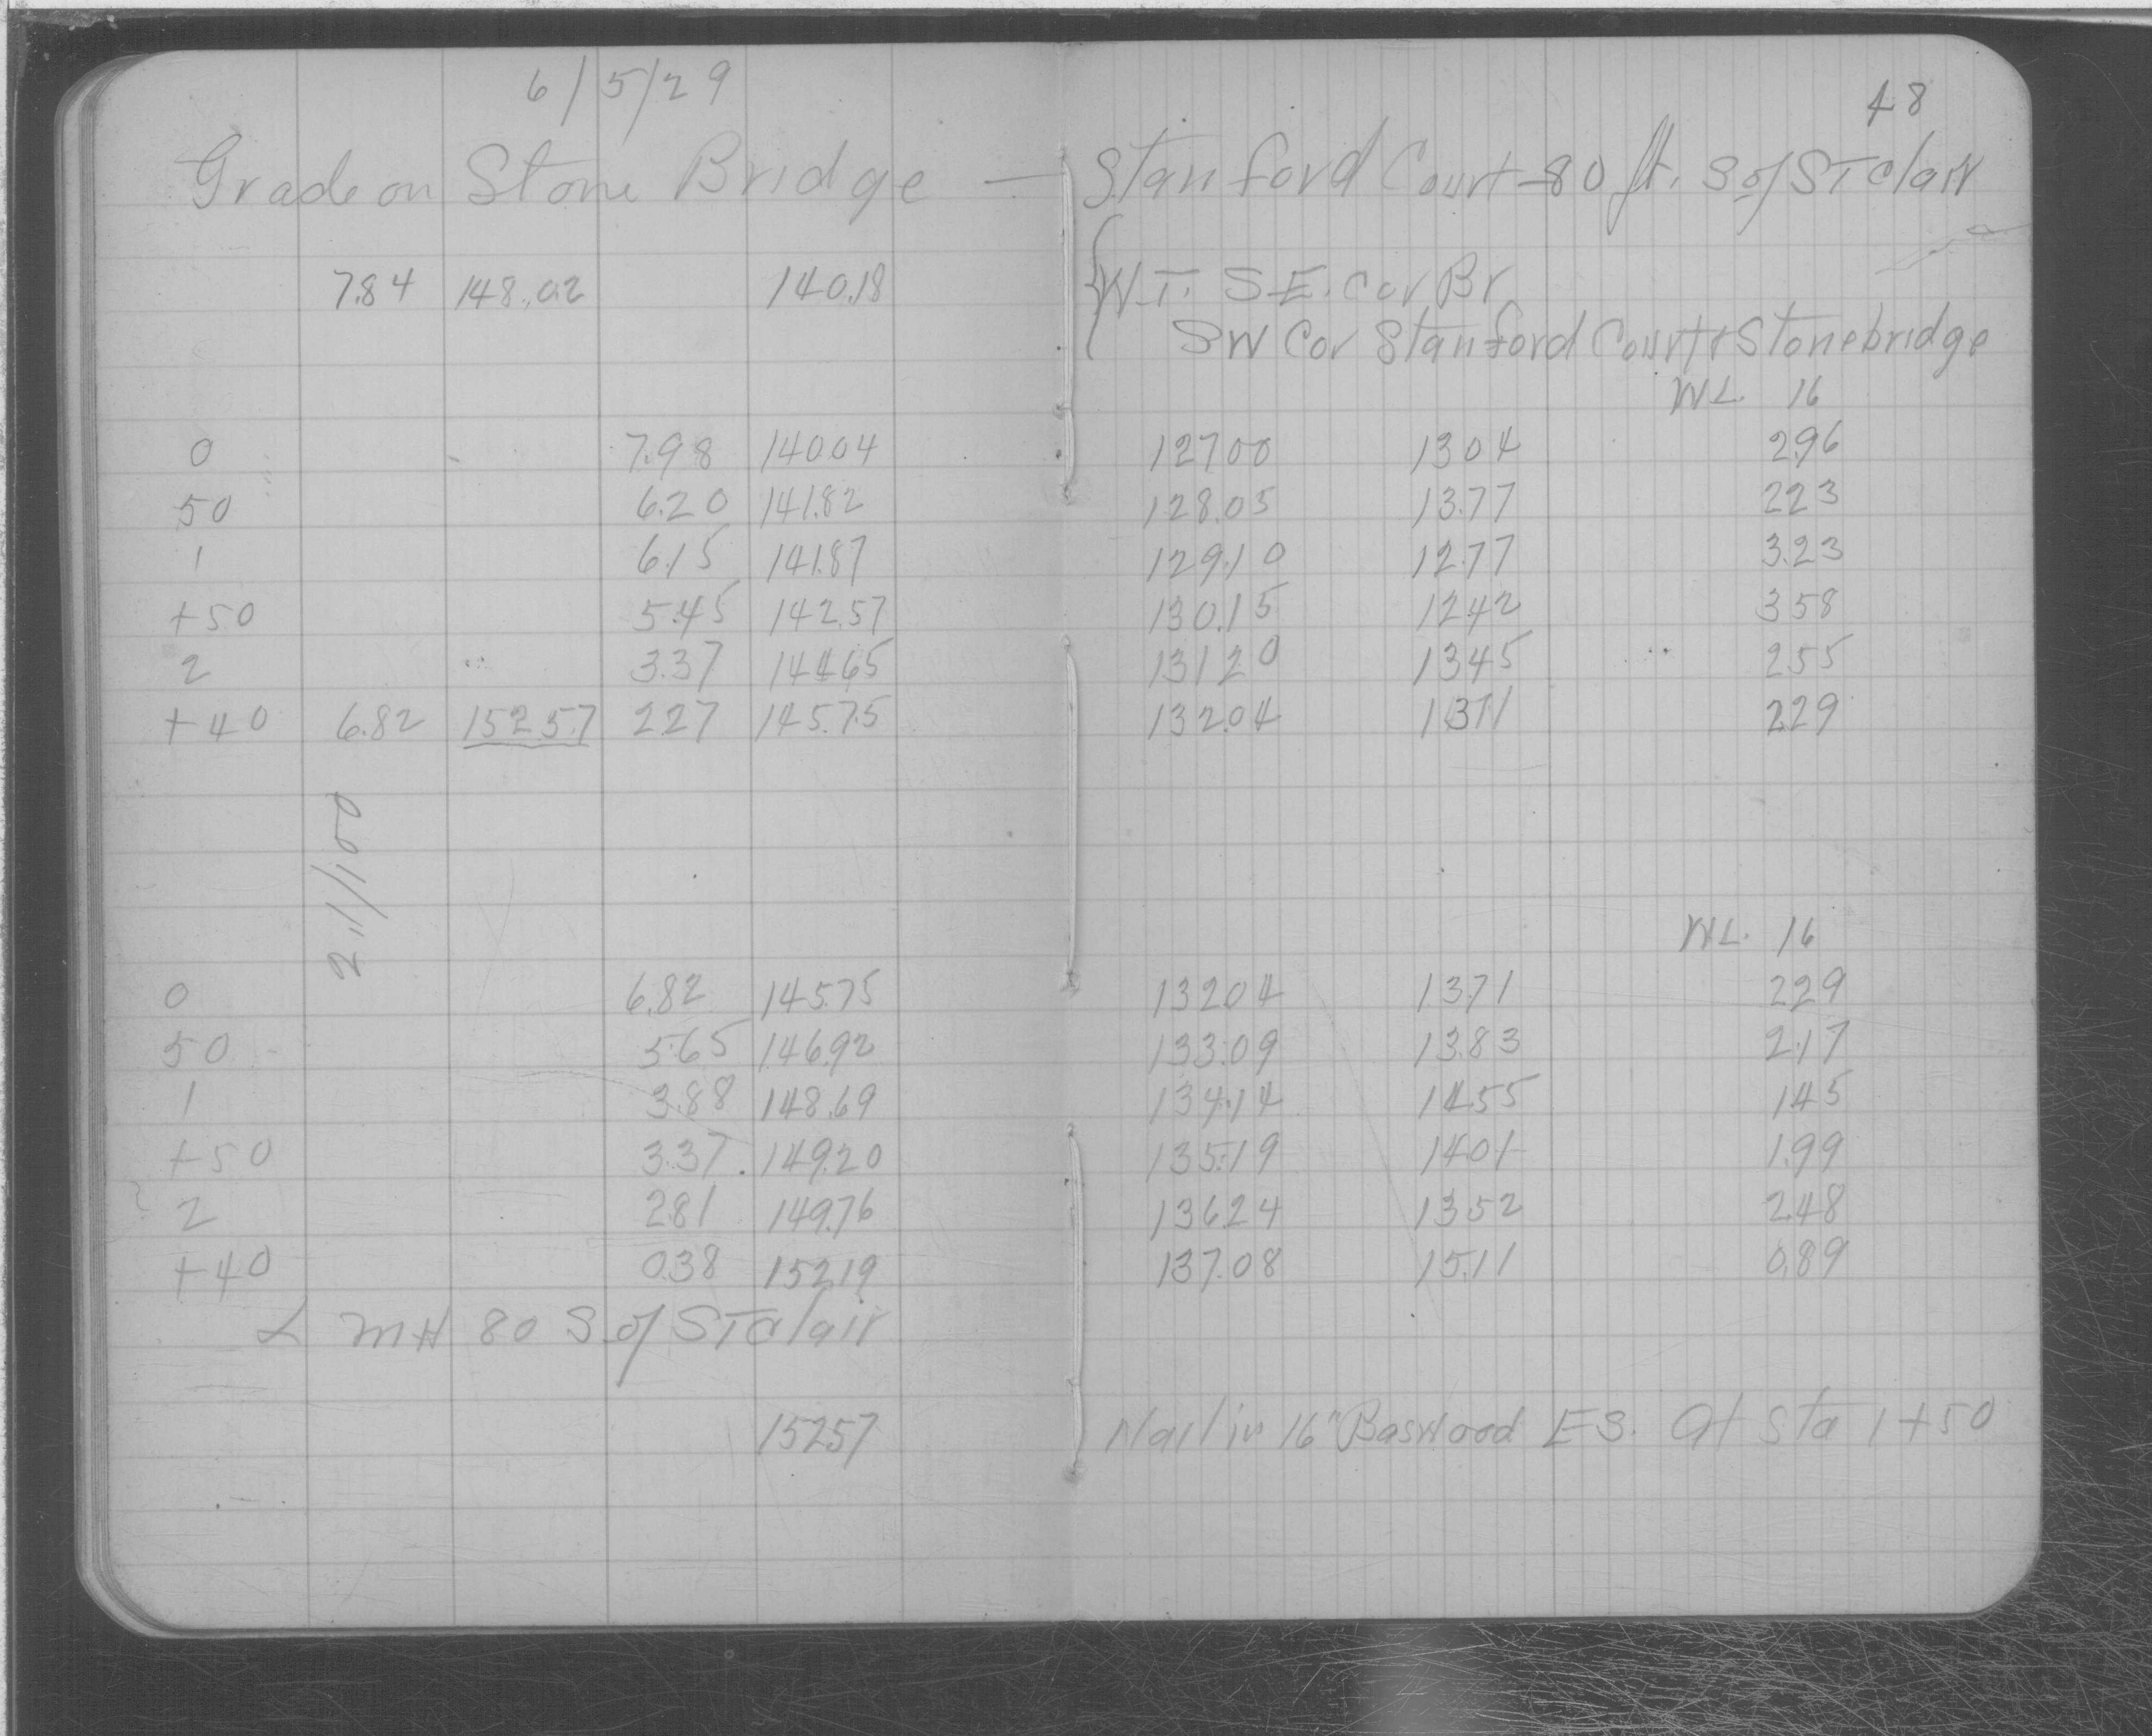 6/5/29
48
Grade on Stone Bridge — Stanford Court - 80 ft. S of St Clair
7.84 148.02 140.18 W.T. S.E. Cor Br
SW Cor Stanford Court & Stonebridge
WL. 16
0 7.98 140.04 127.00 13.04 2.96
50 6.20 141.82 128.05 13.77 2.23
1 6.15 141.87 129.10 12.77 3.23
+50 5.45 142.57 130.15 12.42 3.58
2 3.37 144.65 131.20 13.45 2.55
+40 6.82 152.57 2.27 145.75 132.04 13.71 2.29
2.11/100
WL. 16
0 6.82 145.75 132.04 13.71 2.29
50 5.65 146.92 133.09 13.83 2.17
1 3.88 148.69 134.14 14.55 1.45
+50 3.37 149.20 135.19 14.01 1.99
2 2.81 149.76 136.24 13.52 2.48
+40 0.38 152.19 137.08 15.11 0.89
MH 80 S. of St Clair
152.57 Nail in 16" Basswood E.S. At Sta 1+50